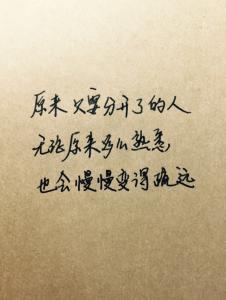 原来只要分开了的人
无论原来多么熟悉
也会慢慢变得疏远